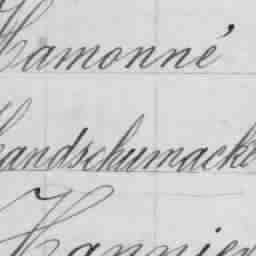 Hamonné
Handschumacke
Hannier